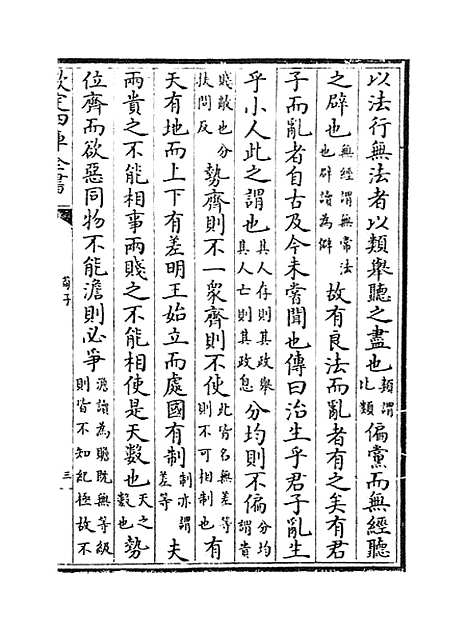 以法行無法者以類舉聽之盡也類謂比類偏黨而無經聽
之辟也無經謂無常法也辟讀為僻故有良法而亂者有之矣有君
子而亂者自古及今未嘗聞也傳曰治生乎君子亂生
乎小人此之謂也其人存則其政舉其人亡則其政息分均則不偏分均謂貴
賤敵也分扶問反勢齊則不一衆齊則不使此皆名無差等則不可相制也有
天有地而上下有差明王始立而處國有制制亦謂差等夫
兩貴之不能相事兩賤之不能相使是天數也天之數也勢
位齊而欲惡同物不能澹則必爭澹讀為贍既無等級則皆不知紀極故不
欽定四庫全書
荀子
三